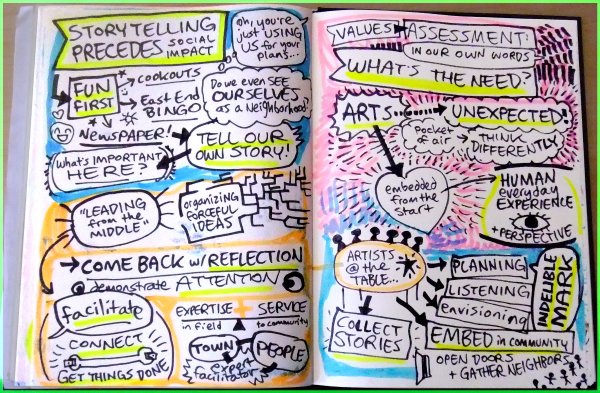 STORYTELLING
PRECEDES SOCIAL
IMPACT
Oh, you're
just USING
US for your
plans...
FUN
FIRST
cookouts
East End
BINGO
NEWSPAPER!
Do we even SEE
OURSELVES
as a Neighborhood?
TELL OUR
OWN STORY!
What's IMPORTANT
HERE?
"LEADING
from the
MIDDLE"
organizing
FORCEFUL
IDEAS
COME BACK w/ REFLECTION
demonstrate ATTENTION
facilitate
CONNECT
GET THINGS DONE
EXPERTISE + SERVICE
in Field to community
TOWN PEOPLE
expert
facilitator
VALUES ASSESSMENT:
IN OUR OWN WORDS
WHAT'S THE NEED?
ARTS UNEXPECTED
Pocket
of air
THINK
DIFFERENTLY
embedded
from the
Start
HUMAN
everyday
EXPERIENCE
+ PERSPECTIVE
ARTISTS
@ the
TABLE...
PLANNING
LISTENING
envisioning
INDELIBLE
MARK
COLLECT
STORIES
EMBED in COMMUNITY
OPEN DOORS
+ GATHER NEIGHBORS